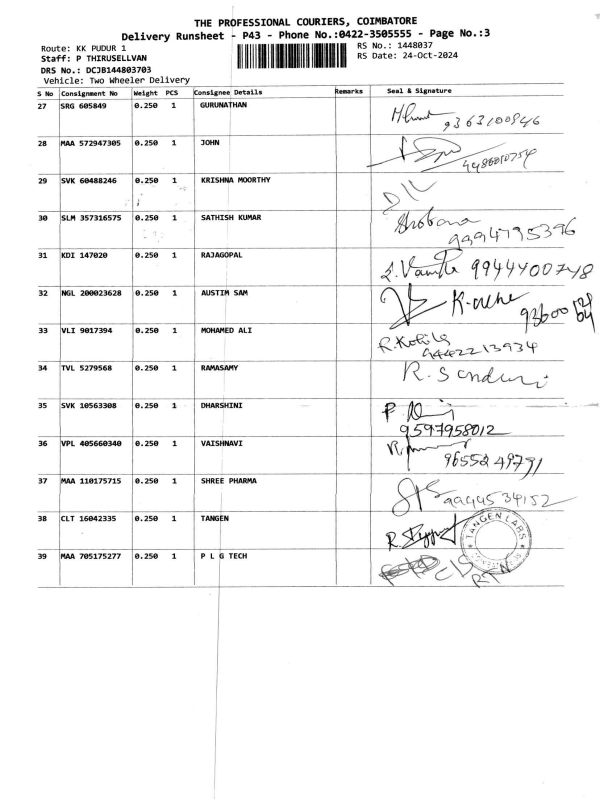 THE PROFESSIONAL COURIERS, COIMBATORE
Delivery Runsheet - P43 - Phone No.:0422-3505555 - Page No.:3
Route: KK PUDUR 1
RS No.: 1448037
Staff: P THIRUSELLVAN
RS Date: 24-Oct-2024
DRS No.: DCJB144803703
Vehicle: Two Wheeler Delivery
S No Consignment No Weight PCS Consignee Details Remarks Seal & Signature
27 SRG 605849 0.250 1 GURUNATHAN
9363100946
28 MAA 572947305 0.250 1 JOHN
29 SVK 60488246 0.250 1 KRISHNA MOORTHY
30 SLM 357316575 0.250 1 SATHISH KUMAR Shobana
9994795396
31 KDI 147020 0.250 1 RAJAGOPAL
9944400748
32 NGL 200023628 0.250 1 AUSTIM SAM
33 VLI 9017394 0.250 1 MOHAMED ALI R. Kokila
9442213934
34 TVL 5279568 0.250 1 RAMASAMY
35 SVK 10563308 0.250 1 DHARSHINI
9597958012
36 VPL 405660340 0.250 1 VAISHNAVI
9655249791
37 MAA 110175715 0.250 1 SHREE PHARMA
9994534152
38 CLT 16042335 0.250 1 TANGEN
TANGEN LABS
39 MAA 705175277 0.250 1 P L G TECH
C/S
RTN